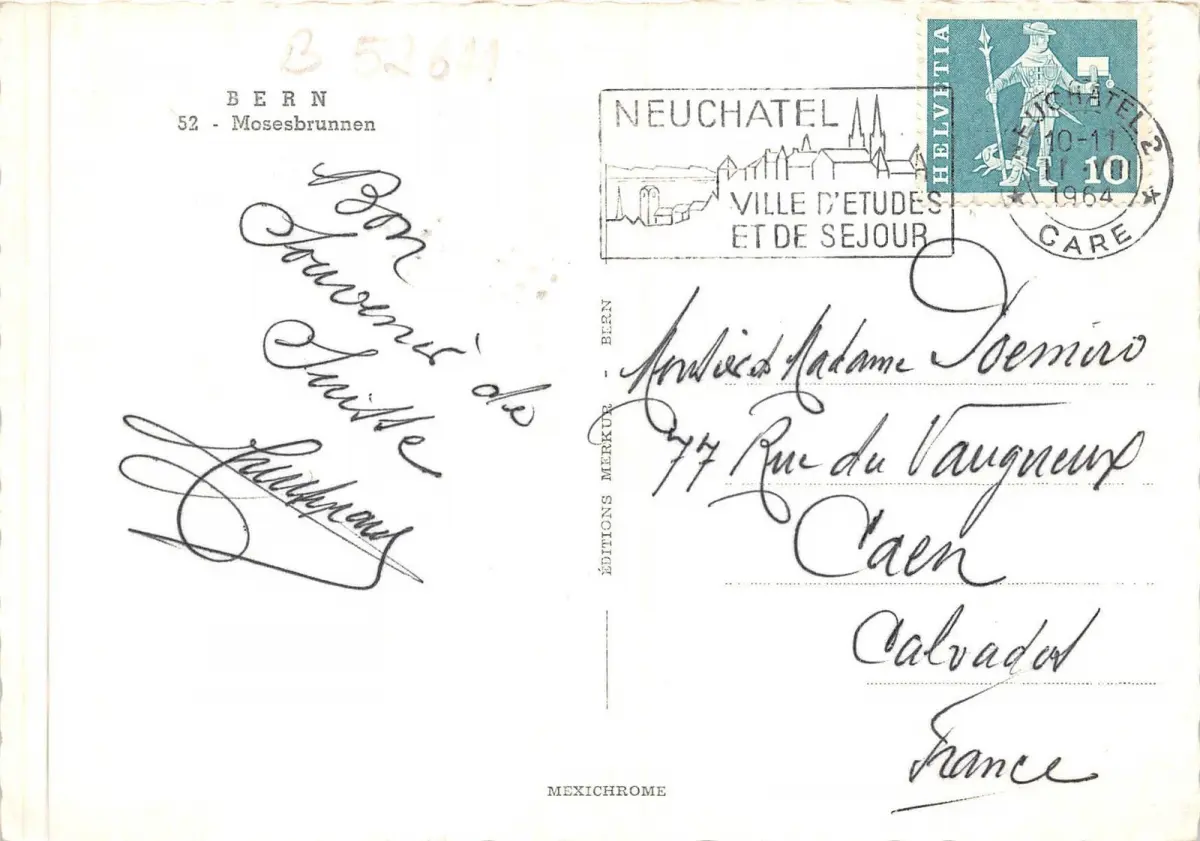 B 52611
BERN
52 - Mosesbrunnen
Bon
Souvenir de
Suisse
NEUCHATEL
VILLE D'ETUDES
ET DE SEJOUR
HELVETIA
10
NEUCHATEL 2
10-11
1964
GARE
ÉDITIONS MERKUR - BERN
Monsieur et Madame
77 Rue du Vaugueux
Caen
Calvados
France
MEXICHROME